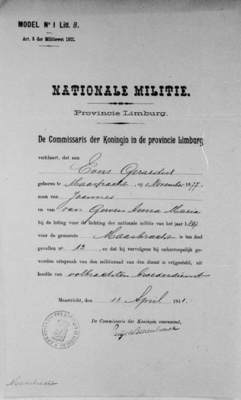 MODEL No 1 Litt. B.
Art. 5 der Militiewet 1901.
NATIONALE MILITIE.
Provincie Limburg.
De Commissaris der Koningin in de provincie Limburg
verklaart, dat aan
Gerardus
geboren te Maasbracht November
zoon van Joannes
en van Anna Maria
bij de loting voor de lichting der nationale militie van het jaar
voor de gemeente Maasbracht is ten deel
gevallen no. 12, en dat hij vervolgens bij onherroepelijk ge-
worden uitspraak van den militieraad van den dienst is vrijgesteld, uit
hoofde van volbrachten broederdienst
Maastricht, den April
De Commissaris der Koningin voornoemd,
Maasbracht